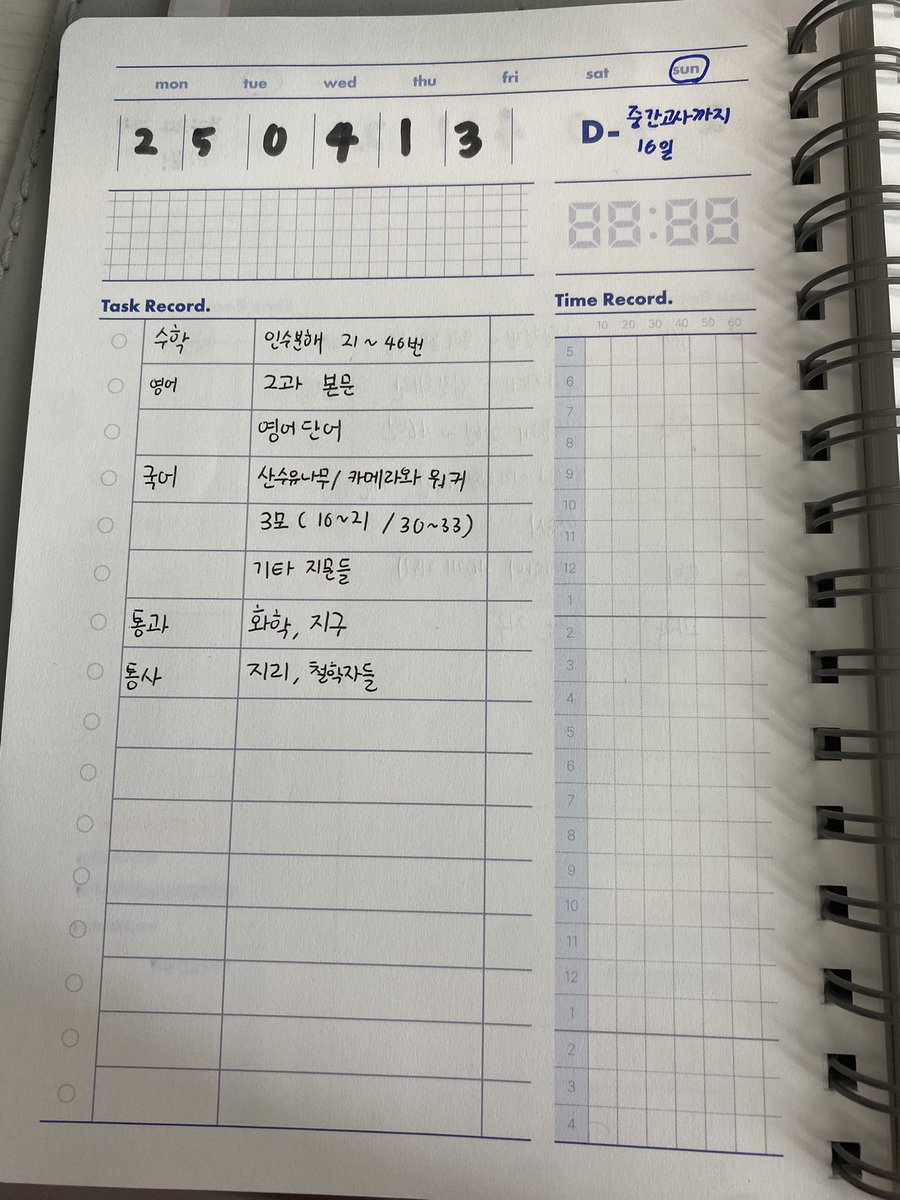 mon tue wed thu fri sat sun
2 5 0 4 1 3
D- 중간고사까지
16일
88:88
Task Record.
수학 인수분해 21~46번
영어 2과 본문
영어단어
국어 산수유나무/ 카메라와 워커
3모 (16~21 / 30~33)
기타 지문들
통과 화학, 지구
통사 지리, 철학자들
Time Record.
10 20 30 40 50 60
5
6
7
8
9
10
11
12
1
2
3
4
5
6
7
8
9
10
11
12
1
2
3
4